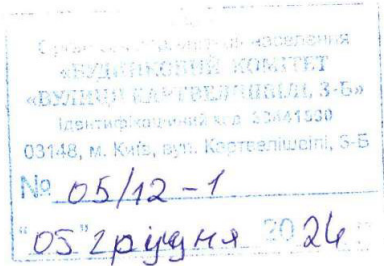 Орган самоорганізації населення
«БУДИНКОВИЙ КОМІТЕТ
«ВУЛИЦЯ КАРТВЕЛІШВІЛІ, 3-Б»
Ідентифікаційний код
03148, м. Київ, вул. Картвелішвілі, 3-Б
№ 05/12-1
"05" грудня 2024